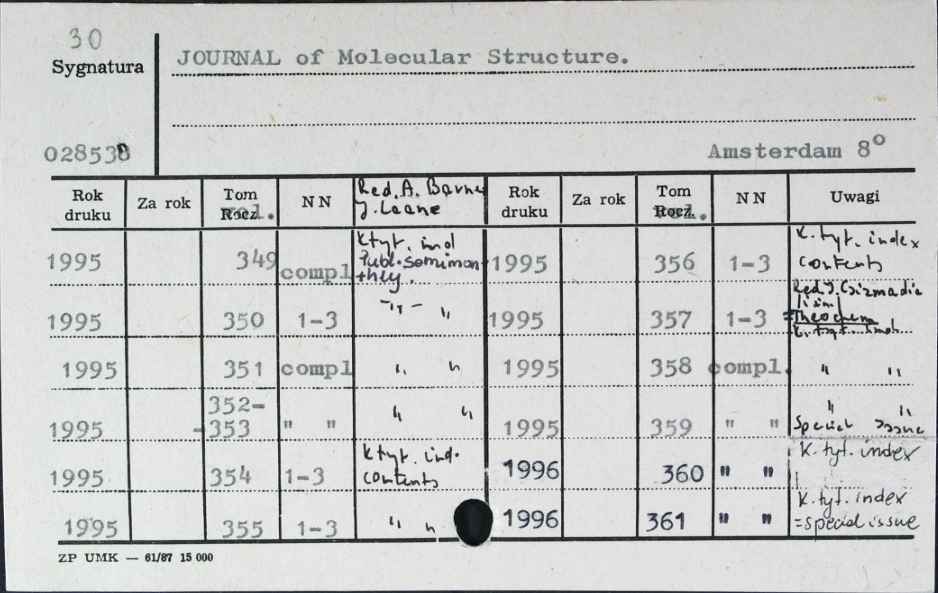 30
Sygnatura
JOURNAL of Molecular Structure.
028538
Amsterdam 8°
Rok druku Za rok Tom Rocz. NN Red. A. Barne Rok druku Za rok Tom Rocz. NN Uwagi
1995 349 compl K.tyt. ind 1995 356 1-3 K.tyt. index contents
1995 350 1-3 -"- " 1995 357 1-3 =Theochem
1995 351 compl " " 1995 358 compl. " "
1995 352-353 " " " " 1995 359 " " " " Special Issue
1995 354 1-3 K tyt. ind. contents 1996 360 " " K.tyt. index
1995 355 1-3 " " 1996 361 " " K.tyt. index =special issue
ZP UMK — 61/87 15 000